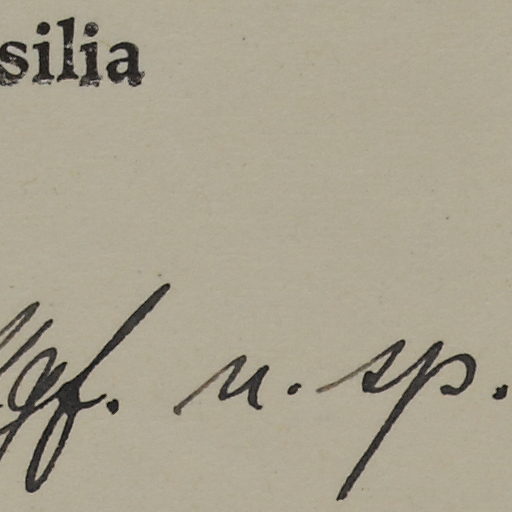 silia
lgf. n. sp.